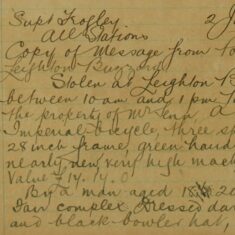 Supt Frogley 2 J
All Stations
Copy of Message from
Leighton Buzzard
Stolen at Leighton B
between 10 am and 1 pm
the property of Mr Enn, A
Imperial bicycle, three sp
28 inch frame, green hand
nearly new, very high mach
Value £14. 14. 0
By a man aged 18 20
Fair complex Dressed da
and black bowler hat,